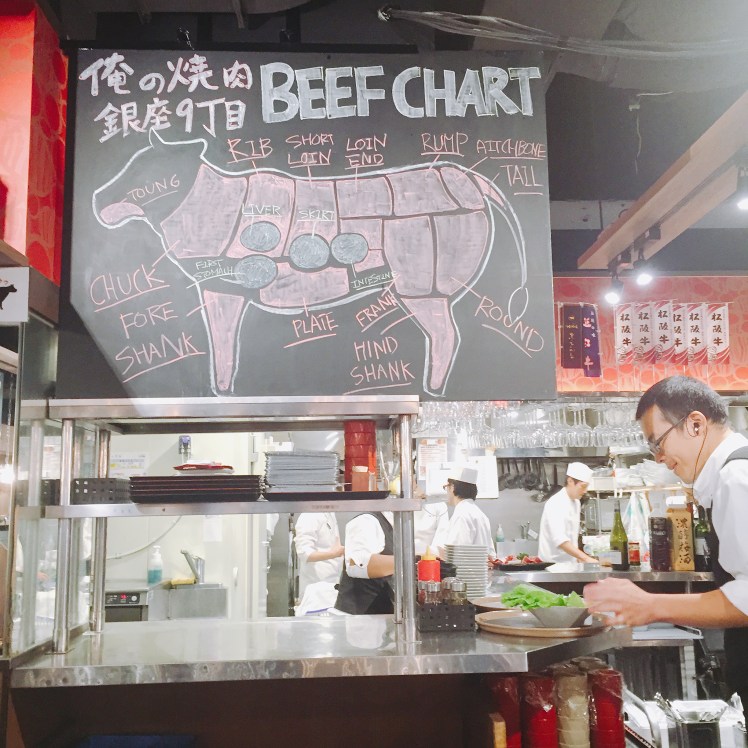 俺の焼肉
銀座9丁目
BEEF CHART
RIB
SHORT
LOIN
LOIN
END
RUMP
AITCHBONE
TAIL
TOUNG
LIVER
SKIRT
FIRST
STOMACH
INTESTINE
CHUCK
FORE
SHANK
PLATE
FRANK
HIND
SHANK
ROUND
松阪牛
松阪牛
松阪牛
松阪牛
梅酒